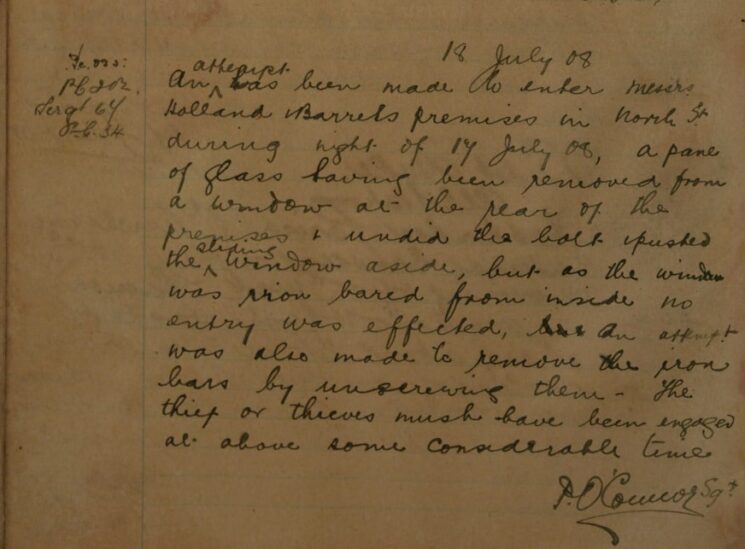 18 July 08
P.C. 202.
Sergt 64
P.C. 34
An attempt has been made to enter Messrs
Holland & Barrets premises in North St
during night of 17 July 08, a pane
of glass having been removed from
a window at the rear of the
premises & undid the bolt & pushed
the sliding window aside, but as the window
was iron bared from inside no
entry was effected, an attempt
was also made to remove the iron
bars by unscrewing them – The
thief or thieves must have been engaged
at above some considerable time
P. O'Connor Sgt